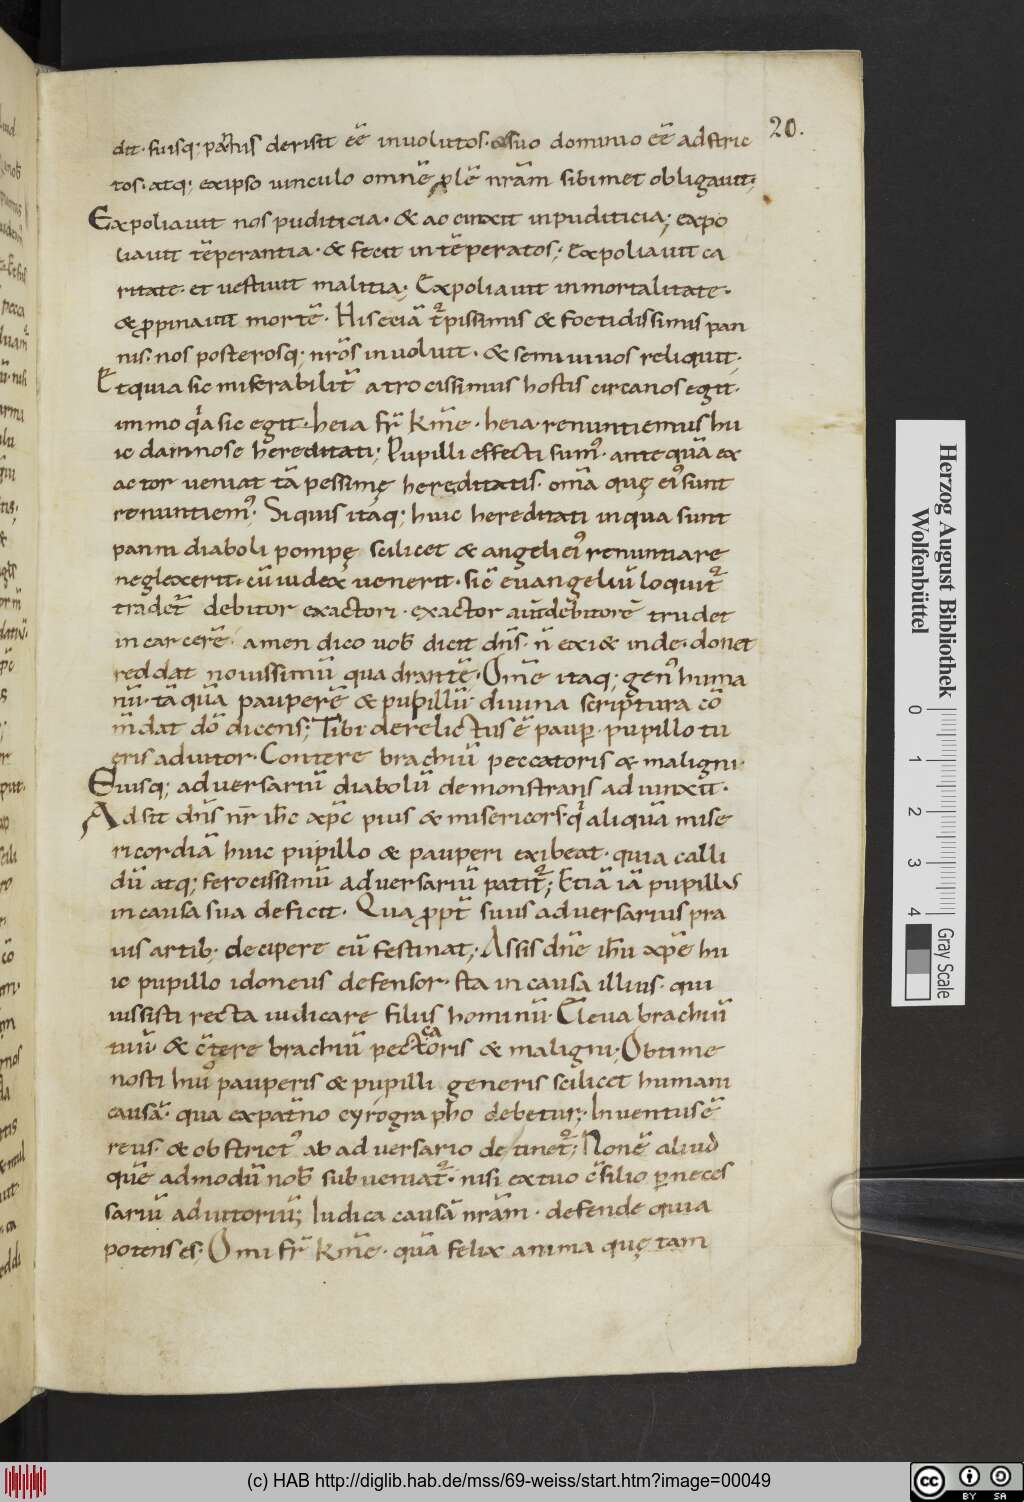 20.
dit. suisq; pannis derisit eē inuolutos. suo dominio eē adstric
tos. atq; ex ipso uinculo omnē plē nrām sibimet obligauit;
Expoliauit nos puditicia. & accinxit inpuditicia; expo
liauit tēperantia. & fecit intēperatos; Expoliauit ca
ritate. et uestiuit malitia; Expoliauit inmortalitate.
& ppinauit mortē. His eciā turpissimis & foetidissimis pan
nis. nos posterosq; nrōs inuoluit. & semiuiuos reliquit.
Et quia sic miserabilit̄ atrocissimus hostis circa nos egit.
immo qa sic egit. heia fr̄ kmē. heia. renuntiemus hu
ic damnose hereditati; Pupilli effecti sum9. antequā ex
actor ueniat tā pessimę hereditatis. omā quę ei9 sunt
renuntiem9. Si quis itaq; huic hereditati in qua sunt
panni diaboli pompę scilicet & angeli ei9 renuntiare
neglexerit. cū iudex uenerit. sic euangeliū loquit̄
tradet̄ debitor exactori. exactor aut debitorē trudet
in carcerē. amen dico uob dicit dn̄s. n̄ exi& inde. donec
reddat nouissimū quadrantē. Omē itaq; gen9 huma
nū. tāquā pauperē & pupillū diuina scriptura cō
m̄dat dō dicens; Tibi derelictus ē paup. pupillo tu
eris adiutor. Contere brachiū peccatoris & maligni.
Eiusq; aduersariū diabolū demonstrans adiunxit.
Adsit dn̄s nr̄ ihc xpc pius & misericors. q aliquā mise
ricordiā huic pupillo & pauperi exibeat. quia calli
dū atq; ferocissimū aduersariū patit̄; Etiā iā pupillus
in causa sua deficit. Qua ppt suus aduersarius pra
uis artib; decipere eū festinat; Assis dnē ihū xpē hu
ic pupillo idoneus defensor. sta in causa illius. qui
iussisti recta iudicare filius hominū. Eleua brachiū
tuū & ct̄ere brachiū peccatoris & maligni; Obtime
nosti hui9 pauperis & pupilli generis scilicet humani
causā. qua ex patno cyrographo debetur; Inuentus ē
reus. & obstrict9 ab aduersario detinet̄; Non ē aliud
quē admodū nob subueniat̄. nisi ex tuo csilio pneces
sariū adiutoriū; Iudica causā nrām. defende quia
potens es. O mi fr̄ kmē. quā felix anima quę tam
Herzog August Bibliothek
Wolfenbüttel
0 1 2 3 4
Gray Scale
(c) HAB http://diglib.hab.de/mss/69-weiss/start.htm?image=00049
cc BY SA